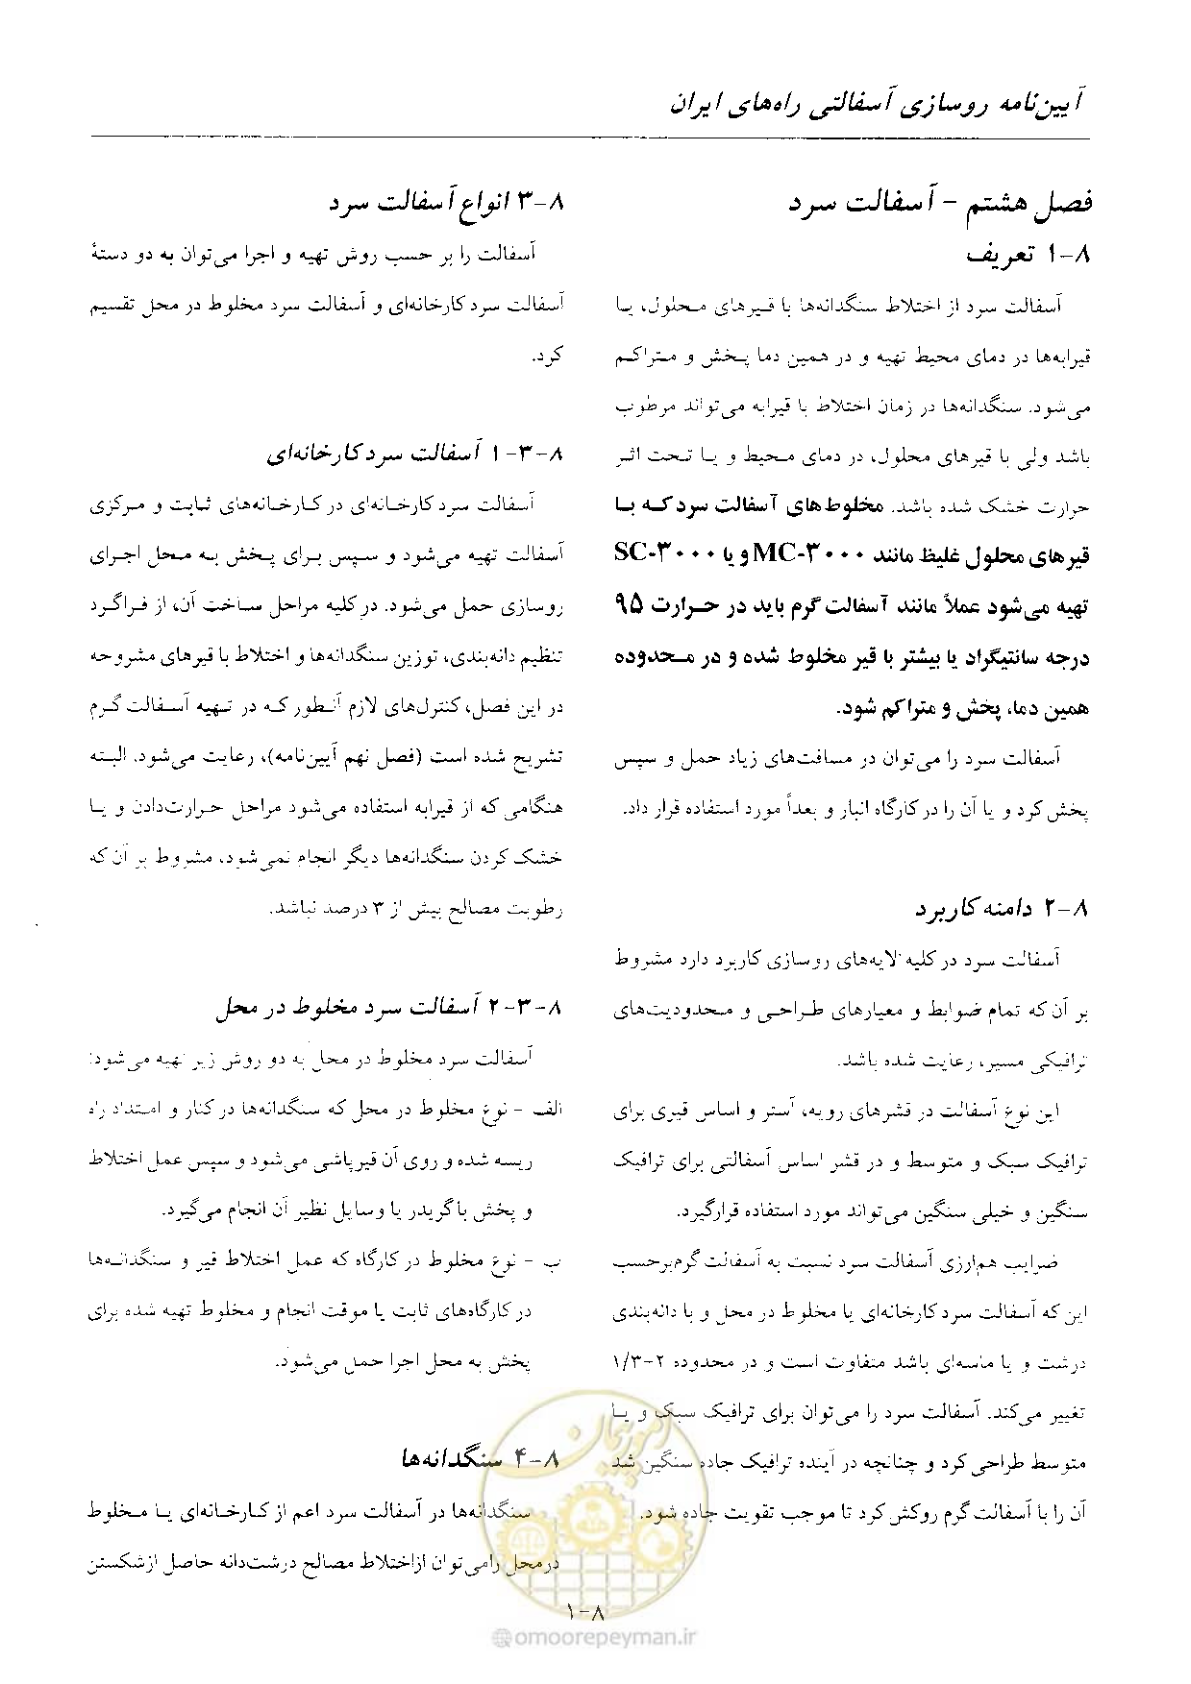 آیین‌نامه روسازی آسفالتی راه‌های ایران
فصل هشتم - آسفالت سرد
۸-۱ تعریف
آسفالت سرد از اختلاط سنگدانه‌ها با قیرهای محلول، یا
قیرابه‌ها در دمای محیط تهیه و در همین دما پخش و متراکم
می‌شود. سنگدانه‌ها در زمان اختلاط با قیرابه می‌تواند مرطوب
باشد ولی با قیرهای محلول، در دمای محیط و یا تحت اثر
حرارت خشک شده باشد. مخلوط‌های آسفالت سرد که با
قیرهای محلول غلیظ مانند MC-۳۰۰۰ و یا SC-۳۰۰۰
تهیه می‌شود عملاً مانند آسفالت گرم باید در حرارت ۹۵
درجه سانتیگراد یا بیشتر با قیر مخلوط شده و در محدوده
همین دما، پخش و متراکم شود.
آسفالت سرد را می‌توان در مسافت‌های زیاد حمل و سپس
پخش کرد و یا آن را در کارگاه انبار و بعداً مورد استفاده قرار داد.
۸-۲ دامنه کاربرد
آسفالت سرد در کلیه لایه‌های روسازی کاربرد دارد مشروط
بر آن که تمام ضوابط و معیارهای طراحی و محدودیت‌های
ترافیکی مسیر، رعایت شده باشد.
این نوع آسفالت در قشرهای رویه، آستر و اساس قیری برای
ترافیک سبک و متوسط و در قشر اساس آسفالتی برای ترافیک
سنگین و خیلی سنگین می‌تواند مورد استفاده قرارگیرد.
ضرایب هم‌ارزی آسفالت سرد نسبت به آسفالت گرم برحسب
این که آسفالت سرد کارخانه‌ای یا مخلوط در محل و با دانه‌بندی
درشت و یا ماسه‌ای باشد متفاوت است و در محدوده ۲-۱/۳
تغییر می‌کند. آسفالت سرد را می‌توان برای ترافیک سبک و یا
متوسط طراحی کرد و چنانچه در آینده ترافیک جاده سنگین شد
آن را با آسفالت گرم روکش کرد تا موجب تقویت جاده شود.
۸-۳ انواع آسفالت سرد
آسفالت را بر حسب روش تهیه و اجرا می‌توان به دو دستهٔ
آسفالت سرد کارخانه‌ای و آسفالت سرد مخلوط در محل تقسیم
کرد.
۸-۳-۱ آسفالت سرد کارخانه‌ای
آسفالت سرد کارخانه‌ای در کارخانه‌های ثابت و مرکزی
آسفالت تهیه می‌شود و سپس برای پخش به محل اجرای
روسازی حمل می‌شود. در کلیه مراحل ساخت آن، از فراگرد
تنظیم دانه‌بندی، توزین سنگدانه‌ها و اختلاط با قیرهای مشروحه
در این فصل، کنترل‌های لازم آنطور که در تهیه آسفالت گرم
تشریح شده است (فصل نهم آیین‌نامه)، رعایت می‌شود. البته
هنگامی که از قیرابه استفاده می‌شود مراحل حرارت‌دادن و یا
خشک کردن سنگدانه‌ها دیگر انجام نمی‌شود، مشروط بر آن که
رطوبت مصالح بیش از ۳ درصد نباشد.
۸-۳-۲ آسفالت سرد مخلوط در محل
آسفالت سرد مخلوط در محل به دو روش زیر تهیه می‌شود:
الف - نوع مخلوط در محل که سنگدانه‌ها در کنار و امتداد راه
ریسه شده و روی آن قیرپاشی می‌شود و سپس عمل اختلاط
و پخش با گریدر یا وسایل نظیر آن انجام می‌گیرد.
ب - نوع مخلوط در کارگاه که عمل اختلاط قیر و سنگدانه‌ها
در کارگاه‌های ثابت یا موقت انجام و مخلوط تهیه شده برای
پخش به محل اجرا حمل می‌شود.
۸-۴ سنگدانه‌ها
سنگدانه‌ها در آسفالت سرد اعم از کارخانه‌ای یا مخلوط
درمحل رامی‌توان ازاختلاط مصالح درشت‌دانه حاصل ازشکستن
۸-۱
امور پیمان
@omoorepeyman.ir